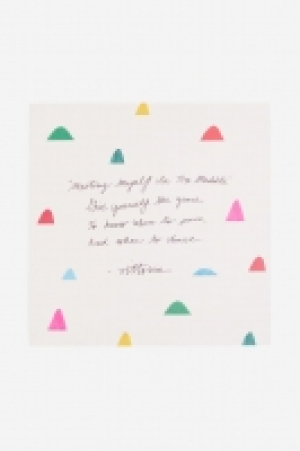 "Meeting Myself In The Middle"
Give yourself the grace
To know when to pause
And when to dance